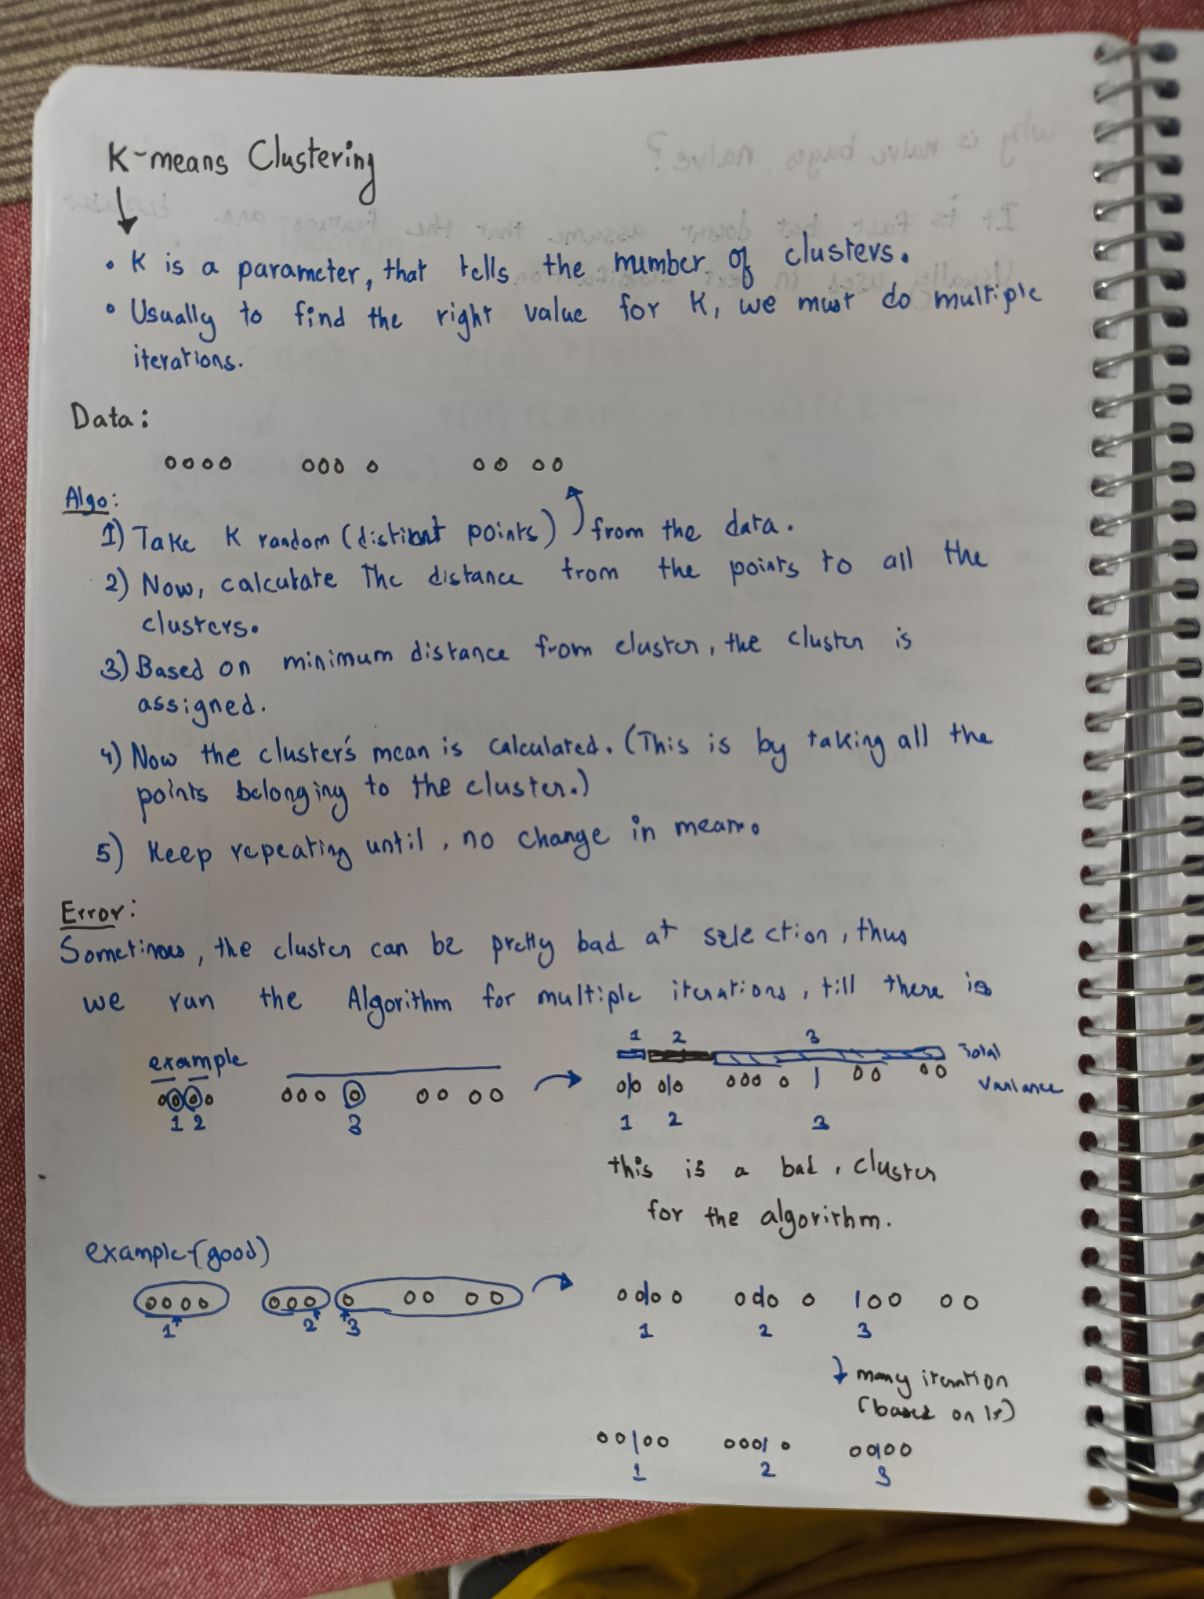 K-means Clustering
• K is a parameter, that tells the number of clusters.
• Usually to find the right value for K, we must do multiple
iterations.
Data:
Algo:
1) Take K random (distinct points) from the data.
2) Now, calculate The distance from the points to all the
clusters.
3) Based on minimum distance from cluster, the cluster is
assigned.
4) Now the cluster's mean is calculated. (This is by taking all the
points belonging to the cluster.)
5) Keep repeating until, no change in mean.
Error:
Sometimes, the cluster can be pretty bad at selection, thus
we run the Algorithm for multiple iterations, till there is
example
1 2 3
1 2 3 Total
Variance
1 2 3
this is a bad, cluster
for the algorithm.
example-(good)
1 2 3
1 2 3
many iteration
(based on
1 2 3